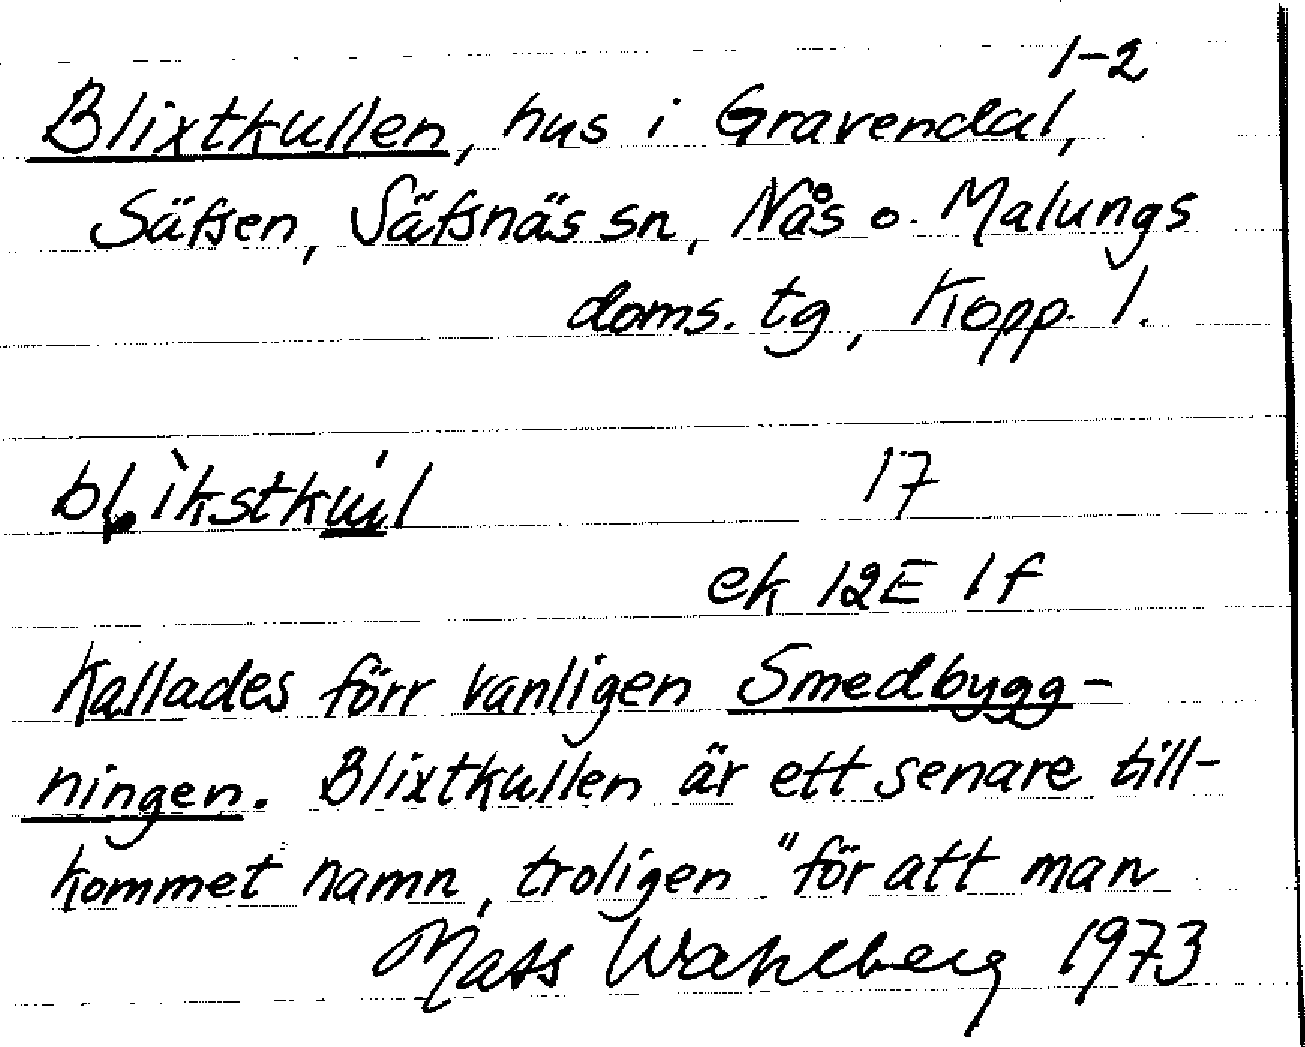 1-2
Blixtkullen, hus i Gravendal,
Säfsen, Säfsnäs sn, Nås o. Malungs
doms. tg, Kopp. l.
17
ek 12E 1f
Kallades förr vanligen Smedbygg-
ningen. Blixtkullen är ett senare till-
kommet namn, troligen "för att man
Mats Wahlberg 1973